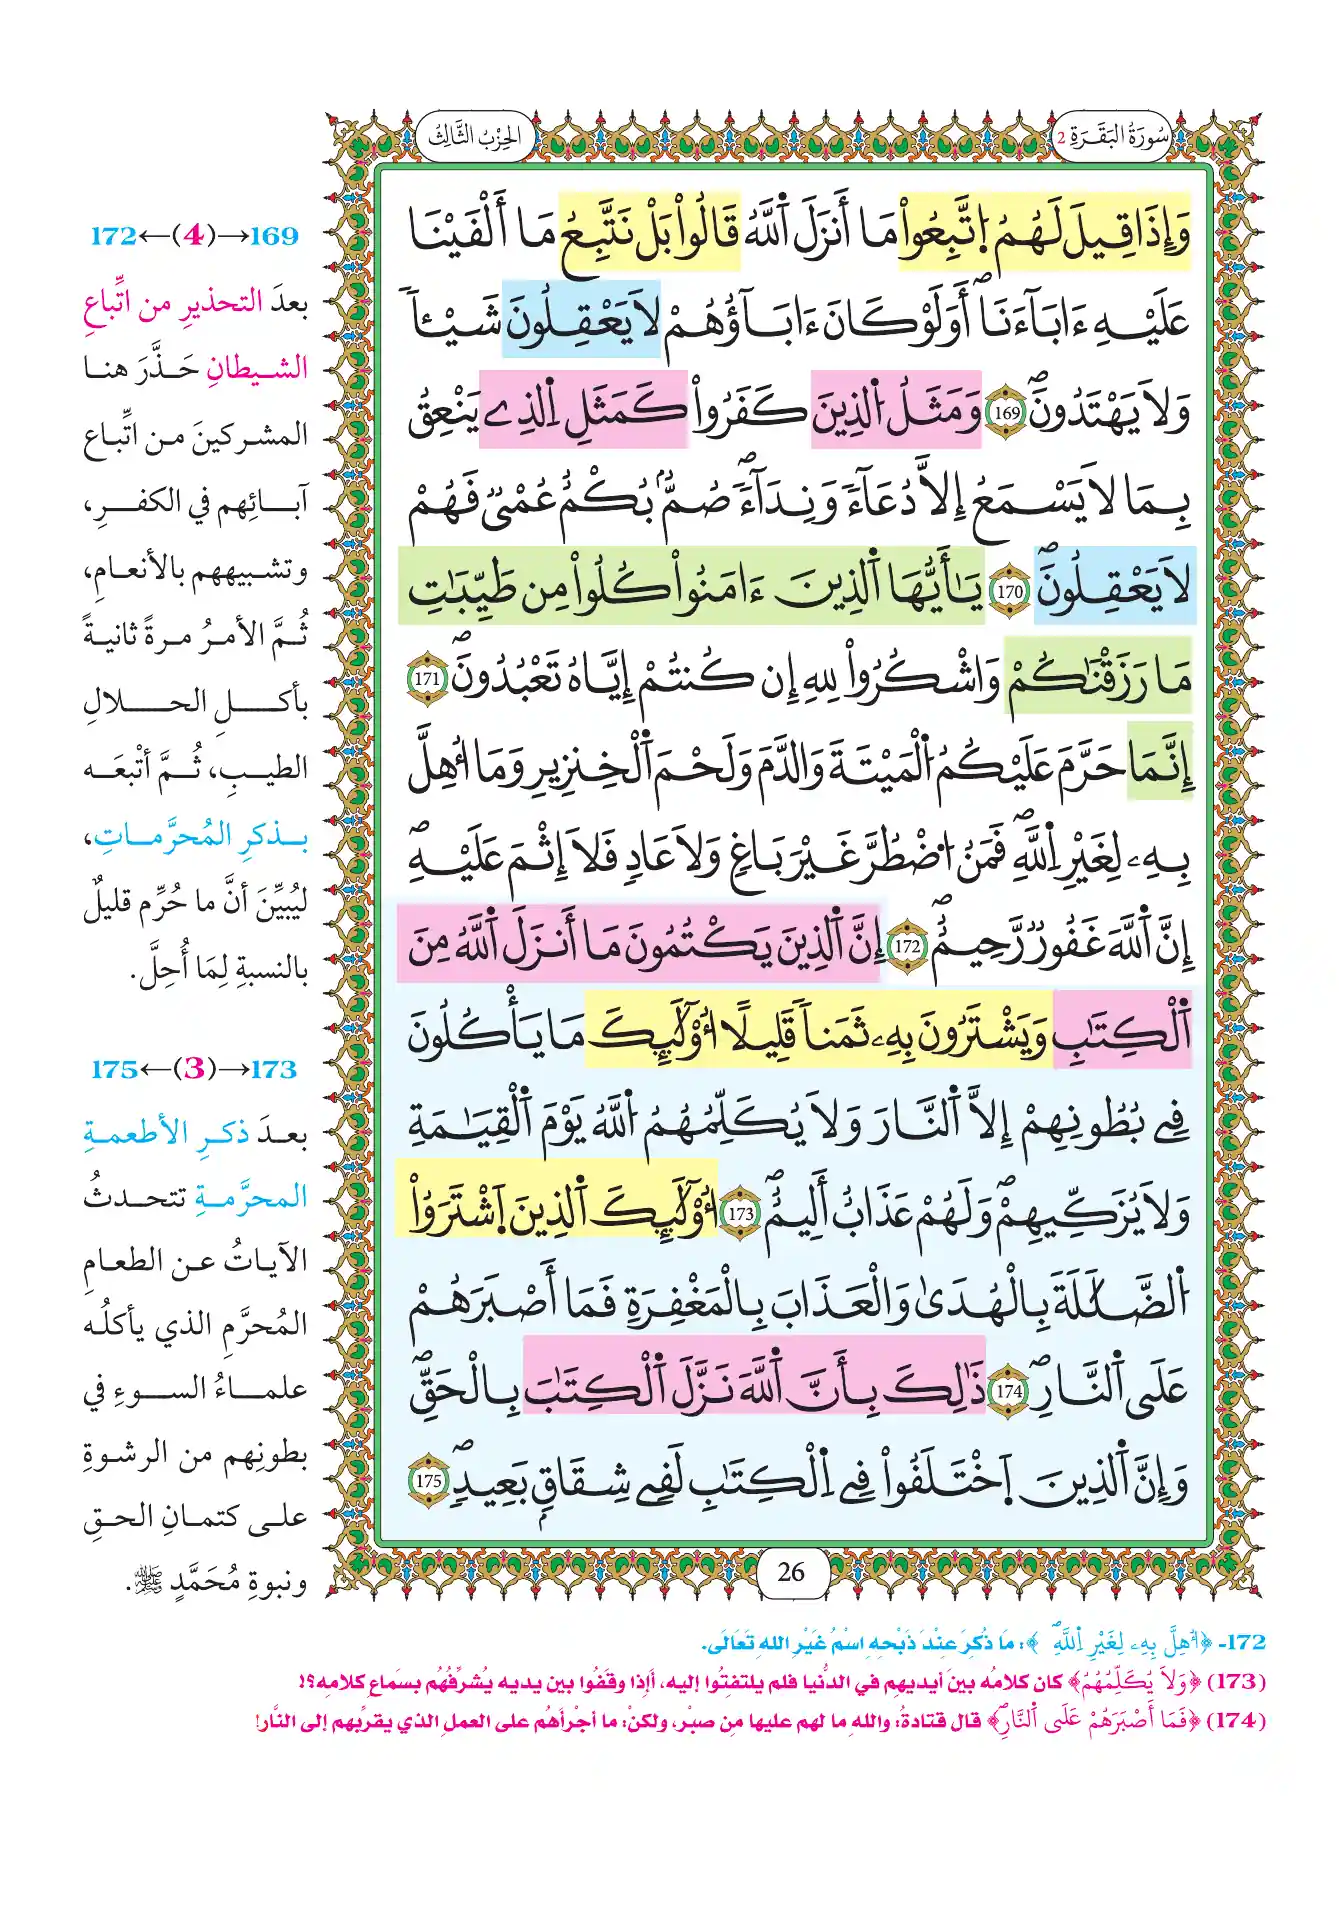 سُورَةُ البَقَرَةِ 2
الحِزْبُ الثَّالِثُ
وَإِذَا قِيلَ لَهُمُ اُ۪تَّبِعُواْ مَا أَنزَلَ اَ۬للَّهُ قَالُواْ بَلْ نَتَّبِعُ مَا أَلْفَيْنَا
عَلَيْهِ ءَابَآءَنَاۖ أَوَلَوْ كَانَ ءَابَآؤُهُمْ لَا يَعْقِلُونَ شَيْـٔاٗ
وَلَا يَهْتَدُونَۖ 169 وَمَثَلُ اُ۬لذِينَ كَفَرُواْ كَمَثَلِ اِ۬لذِے يَنْعِقُ
بِمَا لَا يَسْمَعُ إِلَّا دُعَآءٗ وَنِدَآءٗۖ صُمُّۢ بُكْمٌ عُمْيٞ فَهُمْ
لَا يَعْقِلُونَۖ 170 يَٰأَيُّهَا اَ۬لذِينَ ءَامَنُواْ كُلُواْ مِن طَيِّبَٰتِ
مَا رَزَقْنَٰكُمْ وَاشْكُرُواْ لِلهِ إِن كُنتُمْ إِيَّاهُ تَعْبُدُونَۖ 171
إِنَّمَا حَرَّمَ عَلَيْكُمُ اُ۬لْمَيْتَةَ وَالدَّمَ وَلَحْمَ اَ۬لْخِنزِيرِ وَمَا أُهِلَّ
بِهِۦ لِغَيْرِ اِ۬للَّهِۖ فَمَنُ اُ۟ضْطُرَّ غَيْرَ بَاغٖ وَلَا عَادٖ فَلَا إِثْمَ عَلَيْهِۖ
إِنَّ اَ۬للَّهَ غَفُورٞ رَّحِيمٌۖ 172 إِنَّ اَ۬لذِينَ يَكْتُمُونَ مَا أَنزَلَ اَ۬للَّهُ مِنَ
اَ۬لْكِتَٰبِ وَيَشْتَرُونَ بِهِۦ ثَمَناٗ قَلِيلًا أُوْلَٰٓئِكَ مَا يَأْكُلُونَ
فِے بُطُونِهِمْ إِلَّا اَ۬لنَّارَ وَلَا يُكَلِّمُهُمُ اُ۬للَّهُ يَوْمَ اَ۬لْقِيَٰمَةِ
وَلَا يُزَكِّيهِمْۖ وَلَهُمْ عَذَابٌ أَلِيمٌۖ 173 أُوْلَٰٓئِكَ اَ۬لذِينَ اَ۪شْتَرَوُاْ
اُ۬لضَّلَٰلَةَ بِالْهُدَىٰ وَالْعَذَابَ بِالْمَغْفِرَةِ فَمَا أَصْبَرَهُمْ
عَلَى اَ۬لنَّارِۖ 174 ذَٰلِكَ بِأَنَّ اَ۬للَّهَ نَزَّلَ اَ۬لْكِتَٰبَ بِالْحَقِّۖ
وَإِنَّ اَ۬لذِينَ اَ۪خْتَلَفُواْ فِے اِ۬لْكِتَٰبِ لَفِے شِقَاقٍۢ بَعِيدٖۖ 175
26
169→(4)←172
بعدَ التحذيرِ من اتِّباعِ
الشيطانِ حَذَّرَ هنا
المشركينَ من اتِّباع
آبائِهم في الكفرِ،
وتشبيههم بالأنعامِ،
ثُمَّ الأمرُ مرةً ثانيةً
بأكلِ الحلالِ
الطيبِ، ثُمَّ أتْبعَه
بذكرِ المُحرَّماتِ،
ليُبيِّنَ أنَّ ما حُرِّم قليلٌ
بالنسبةِ لِمَا أُحِلَّ.
173→(3)←175
بعدَ ذكرِ الأطعمةِ
المحرَّمةِ تتحدثُ
الآياتُ عن الطعامِ
المُحرَّمِ الذي يأكلُه
علماءُ السوءِ في
بطونِهم من الرشوةِ
على كتمانِ الحقِ
ونبوةِ مُحَمَّدٍ ﷺ.
172- ﴿أُهِلَّ بِهِۦ لِغَيْرِ اِ۬للَّهِۖ﴾: مَا ذُكِرَ عِنْدَ ذَبْحِهِ اسْمُ غَيْرِ اللهِ تَعَالَى.
(173) ﴿وَلَا يُكَلِّمُهُمُ﴾ كان كلامُه بينَ أيديهِم في الدُّنيا فلم يلتفتُوا إليه، أَإِذا وقَفُوا بين يديه يُشرِّفُهُم بسَماعِ كلامِه؟!
(174) ﴿فَمَا أَصْبَرَهُمْ عَلَى اَ۬لنَّارِۖ﴾ قال قتادةُ: واللهِ ما لهم عليها مِن صبْر، ولكنْ: ما أجْرأهُم على العملِ الذي يقرِّبهم إلى النَّار!